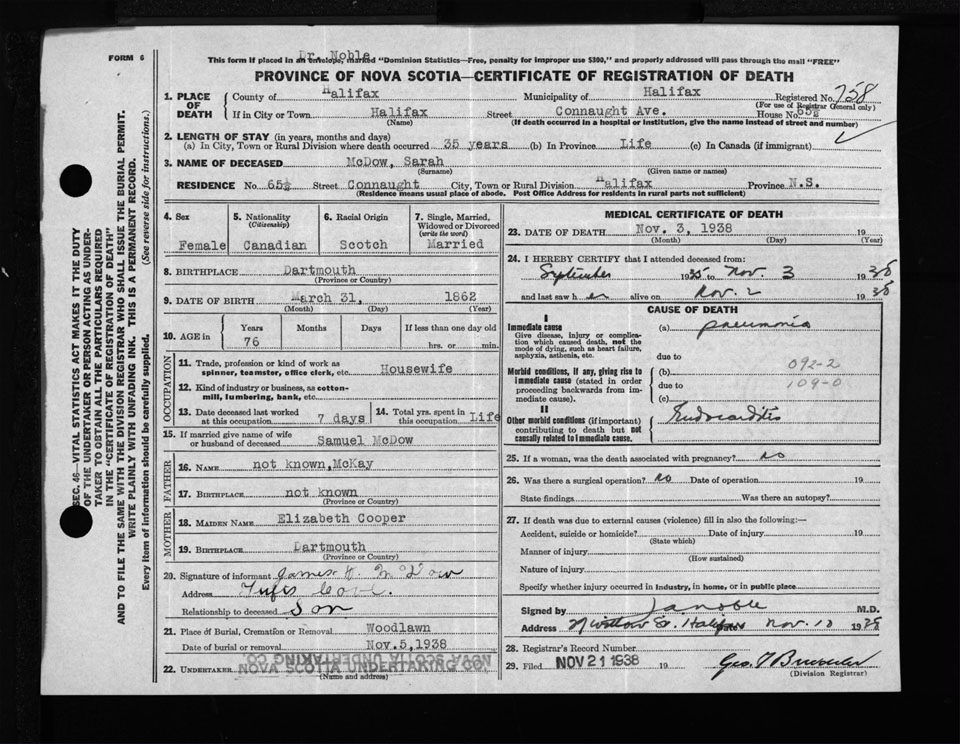 FORM 6
Dr. Noble
This form if placed in an envelope, marked "Dominion Statistics—Free, penalty for improper use $300," and properly addressed will pass through the mail "FREE"
PROVINCE OF NOVA SCOTIA—CERTIFICATE OF REGISTRATION OF DEATH
1. PLACE OF DEATH
County of Halifax Municipality of Halifax Registered No. 758
(For use of Registrar General only)
If in City or Town Halifax Street Connaught Ave. House No. 65½
(Name) (If death occurred in a hospital or institution, give the name instead of street and number)
2. LENGTH OF STAY (in years, months and days)
(a) In City, Town or Rural Division where death occurred 35 years (b) In Province Life (c) In Canada (if immigrant)
3. NAME OF DECEASED McDow, Sarah
(Surname) (Given name or names)
RESIDENCE No. 65½ Street Connaught City, Town or Rural Division Halifax Province N.S.
(Residence means usual place of abode. Post Office Address for residents in rural parts not sufficient)
4. Sex
Female
5. Nationality
(Citizenship)
Canadian
6. Racial Origin
Scotch
7. Single, Married, Widowed or Divorced
(write the word)
Married
8. BIRTHPLACE Dartmouth
(Province or Country)
9. DATE OF BIRTH March 31, 1862
(Month) (Day) (Year)
10. AGE in
Years Months Days If less than one day old
76 hrs. or min.
OCCUPATION
11. Trade, profession or kind of work as
spinner, teamster, office clerk, etc. Housewife
12. Kind of industry or business, as cotton-
mill, lumbering, bank, etc.
13. Date deceased last worked
at this occupation 7 days
14. Total yrs. spent in
this occupation Life
15. If married give name of wife
or husband of deceased Samuel McDow
FATHER
16. NAME not known, McKay
17. BIRTHPLACE not known
(Province or Country)
MOTHER
18. MAIDEN NAME Elizabeth Cooper
19. BIRTHPLACE Dartmouth
(Province or Country)
20. Signature of informant James McDow
Address Tufts Cove.
Relationship to deceased Son
21. Place of Burial, Cremation or Removal Woodlawn
Date of burial or removal Nov. 5, 1938
22. UNDERTAKER NOVA SCOTIA UNDERTAKING CO.
(Name and address)
MEDICAL CERTIFICATE OF DEATH
23. DATE OF DEATH Nov. 3, 1938 19
(Month) (Day) (Year)
24. I HEREBY CERTIFY that I attended deceased from:
September 1935 to Nov. 3 1938
and last saw her alive on Nov. 2 1938
CAUSE OF DEATH
I
Immediate cause
Give disease, injury or complica-
tion which caused death, not the
mode of dying, such as heart failure,
asphyxia, asthenia, etc.
(a) pneumonia
due to
Morbid conditions, if any, giving rise to
immediate cause (stated in order
proceeding backwards from im-
mediate cause).
(b) 092-2
due to 109-0
(c)
II
Other morbid conditions (if important)
contributing to death but not
causally related to immediate cause.
Endocarditis
25. If a woman, was the death associated with pregnancy? no
26. Was there a surgical operation? no Date of operation 19
State findings Was there an autopsy?
27. If death was due to external causes (violence) fill in also the following:—
Accident, suicide or homicide? Date of injury 19
(State which)
Manner of injury
(How sustained)
Nature of injury
Specify whether injury occurred in industry, in home, or in public place
Signed by Noble M.D.
Address Willow St. Halifax Date Nov. 10 1938
28. Registrar's Record Number
29. Filed NOV 21 1938 19
(Division Registrar)
SEC. 46—VITAL STATISTICS ACT MAKES IT THE DUTY
OF THE UNDERTAKER OR PERSON ACTING AS UNDER-
TAKER TO OBTAIN ALL THE PARTICULARS REQUIRED
IN THE "CERTIFICATE OF REGISTRATION OF DEATH"
AND TO FILE THE SAME WITH THE DIVISION REGISTRAR WHO SHALL ISSUE THE BURIAL PERMIT.
WRITE PLAINLY WITH UNFADING INK. THIS IS A PERMANENT RECORD.
Every item of information should be carefully supplied. (See reverse side for instructions.)